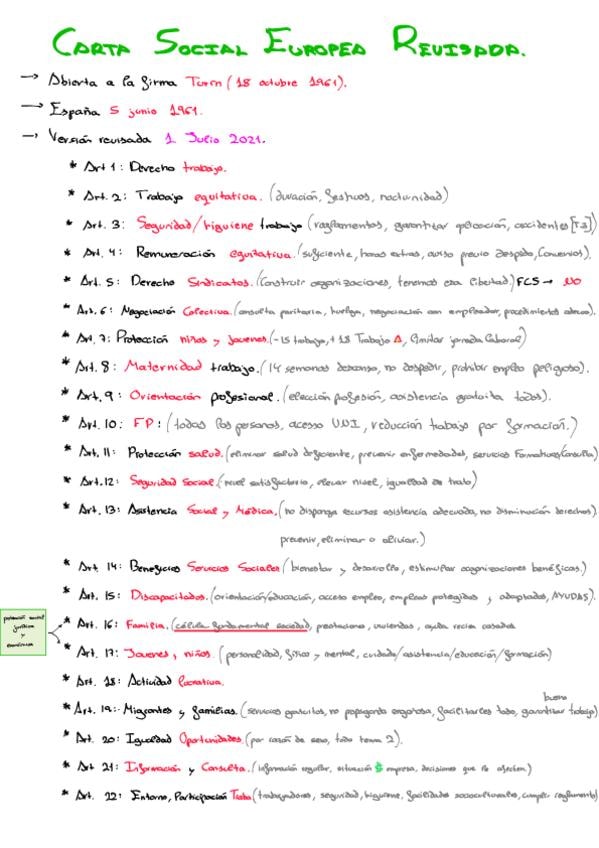 CARTA SOCIAL EUROPEA REVISADA.
→ Abierta a la firma Turín (18 octubre 1961).
→ España 5 junio 1961.
→ Versión revisada 1 Julio 2021.
* Art 1: Derecho trabajo.
* Art. 2: Trabajo equitativa. (duración, festivos, nocturnidad)
* Art. 3: Seguridad/higuiene trabajo (reglamentos, garantizar aplicación, accidentes [T3])
* Art. 4: Remuneración equitativa. (suficiente, horas extras, aviso previo despido, Convenios).
* Art. 5: Derecho Sindicatos. (Construir organizaciones, tenemos esa libertad) FCS → NO
* Art. 6: Negociación Colectiva. (consulta paritaria, huelga, negociación con empleador, procedimientos).
* Art. 7: Protección niños y jovenes. (-15 trabajo, +18 Trabajo ⚠, limitar jornada laboral)
* Art. 8: Maternidad trabajo. (14 semanas descanso, no despedir, prohibir empleo peligroso).
* Art. 9: Orientación profesional. (elección profesión, asistencia gratuita todos).
* Art. 10: FP: (todas las personas, acceso UNI, reducción trabajo por formación.)
* Art. 11: Protección salud. (eliminar salud deficiente, prevenir enfermedades, servicios Formativos/Consulta)
* Art. 12: Seguridad Social. (nivel satisfactorio, elevar nivel, igualdad de trato)
* Art. 13: Asistencia Social y Médica. (no disponga recursos asistencia adecuada, no disminución derechos).
prevenir, eliminar o aliviar.)
* Art. 14: Beneficios Servicios Sociales (bienestar y desarrollo, estimular organizaciones benéficas.)
* Art. 15: Discapacitados. (orientación/educación, acceso empleo, empleos protegidos y adaptados, AYUDAS).
protección social
jurídica
y
económica
* Art. 16: Familia. (célula fundamental sociedad), prestaciones, viviendas, ayuda recien casados
* Art. 17: Jovenes, niños (personalidad, físico y mental, cuidado/asistencia/educación/formación)
* Art. 18: Actividad lucrativa.
bueno
* Art. 19: Migrantes y familias. (servicios gratuitos, no propaganda engañosa, facilitarles todo, garantizar trabajo)
* Art. 20: Igualdad Oportunidades. (por razón de sexo, todo tema 2).
* Art 21: Información y Consulta. (información regular, situación $ empresa, decisiones que les afecten.)
* Art. 22: Entorno, Participación (trabajadores, seguridad, higuiene, facilidades socioculturales, cumplir reglamento)